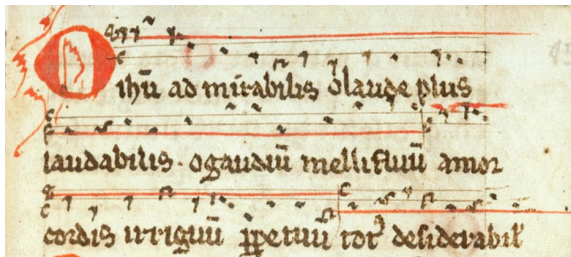 O ihū admirabilis o laude plus
laudabilis · o gaudiū mellifluū amor
cordis irriguū p̲petuū totꝰ desiderabil'